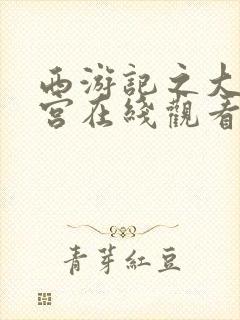 西游記之大
宮在綫觀看
青芽紅豆